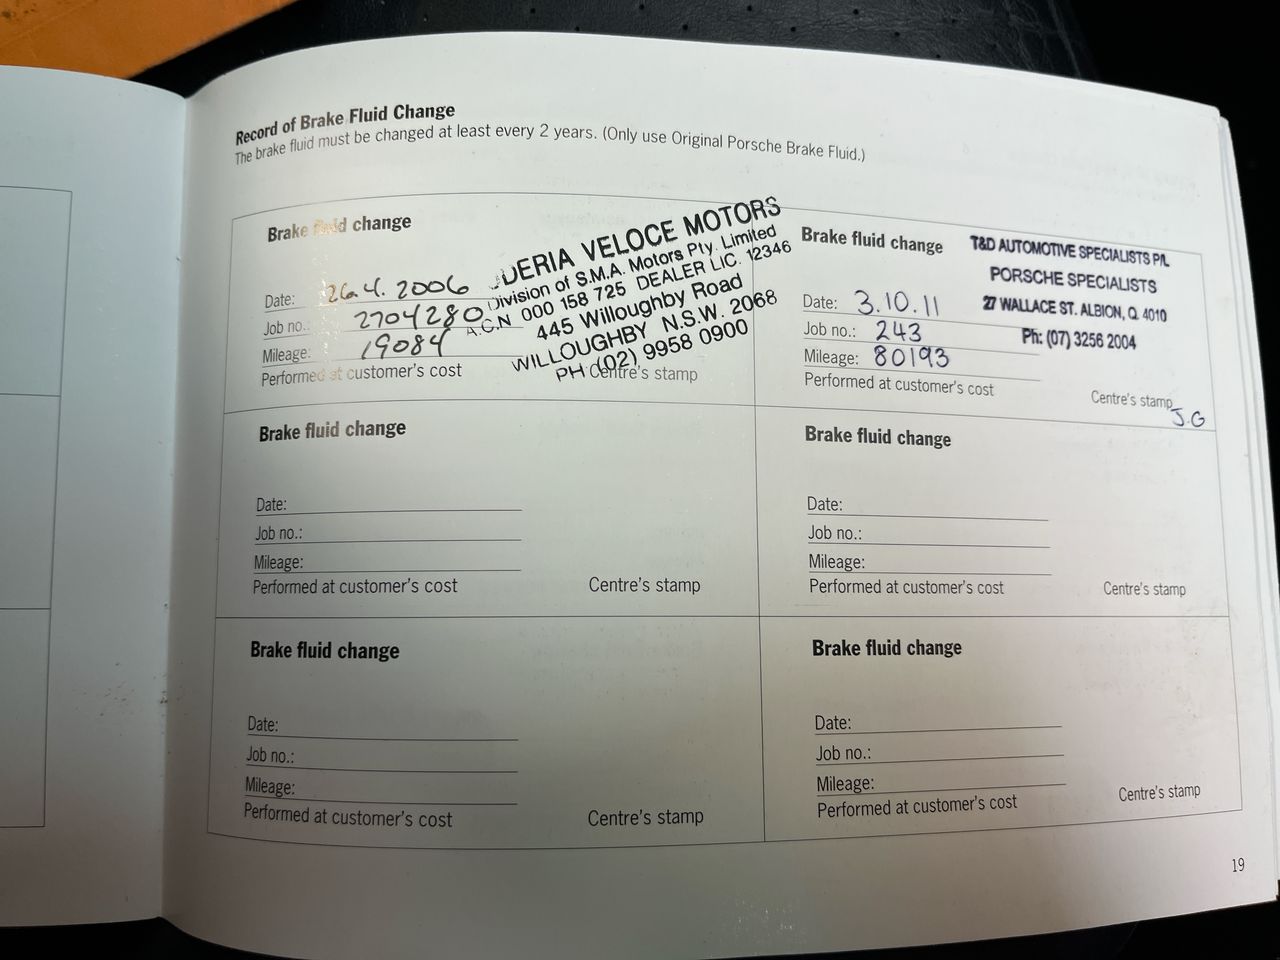 Record of Brake Fluid Change
The brake fluid must be changed at least every 2 years. (Only use Original Porsche Brake Fluid.)
Brake fluid change
DERIA VELOCE MOTORS
Division of S.M.A. Motors Pty. Limited
A.C.N 000 158 725 DEALER LIC. 12346
445 Willoughby Road
WILLOUGHBY N.S.W. 2068
PH (02) 9958 0900
Date: 26.4.2006
Job no.: 2704280
Mileage: 19084
Performed at customer's cost
Centre's stamp
Brake fluid change
T&D AUTOMOTIVE SPECIALISTS P/L
PORSCHE SPECIALISTS
27 WALLACE ST. ALBION, Q. 4010
Ph: (07) 3256 2004
Date: 3.10.11
Job no.: 243
Mileage: 80193
Performed at customer's cost
Centre's stamp
J.G
Brake fluid change
Date:
Job no.:
Mileage:
Performed at customer's cost
Centre's stamp
Brake fluid change
Date:
Job no.:
Mileage:
Performed at customer's cost
Centre's stamp
Brake fluid change
Date:
Job no.:
Mileage:
Performed at customer's cost
Centre's stamp
Brake fluid change
Date:
Job no.:
Mileage:
Performed at customer's cost
Centre's stamp
19